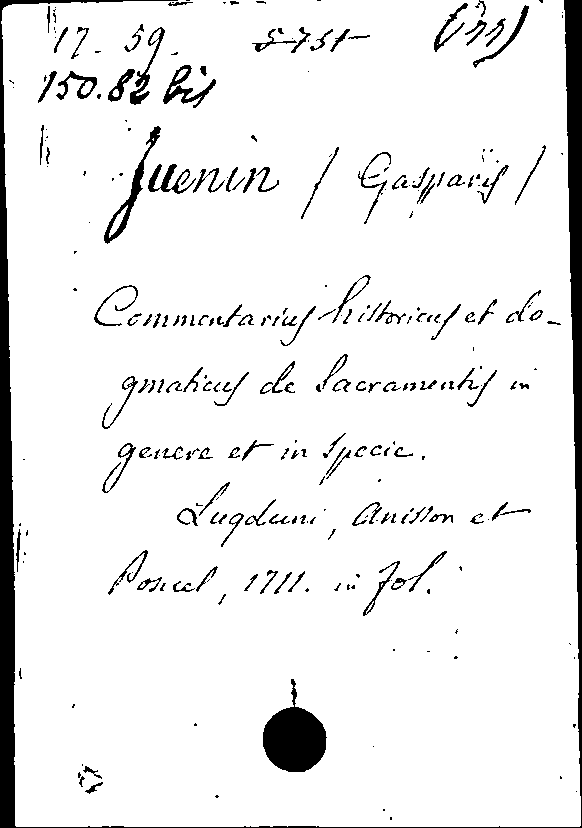 17. 59. 5751
150.82 bis
Juenin / Gasparis /
Commentarius historicus et do-
gmaticus de Sacramentis in
genere et in specie.
Lugduni, Anisson et
Posuel, 1711. in fol.